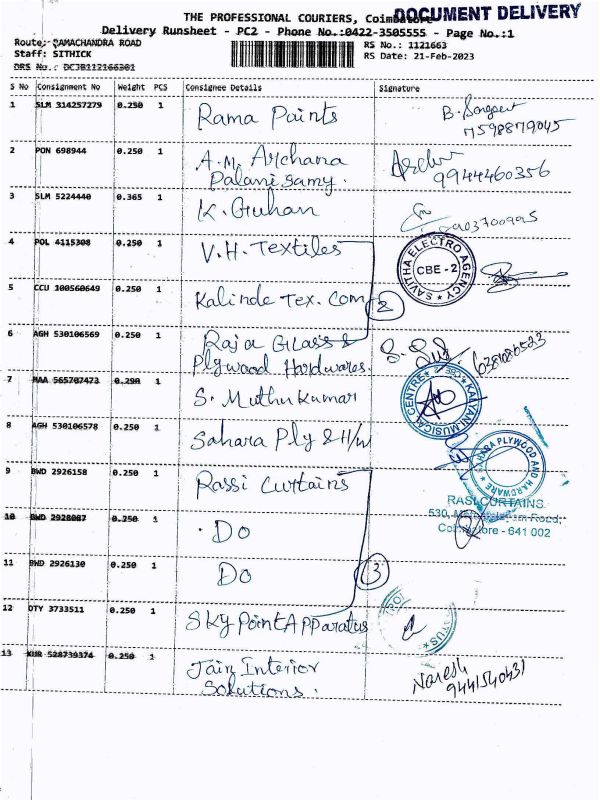 THE PROFESSIONAL COURIERS, Coimbatore
DOCUMENT DELIVERY
Delivery Runsheet - PC2 - Phone No.:0422-3505555 - Page No.:1
Route: RAMACHANDRA ROAD
RS No.: 1121663
Staff: SITHICK
RS Date: 21-Feb-2023
DRS No.: DCJB1121166301
S No Consignment No Weight PCS Consignee Details Signature
1 SLM 314257279 0.250 1 Rama Paints
7598879045
2 PON 698944 0.250 1 A.M. Archana
Palanisamy.
9944460356
3 SLM 5224440 0.365 1 K. Guhan
4 POL 4115308 0.250 1 V.H. Textiles
SAVITHA ELECTRO AGENCY
CBE - 2
5 CCU 100560649 0.250 1 Kalinde Tex. Com
2
6 AGH 530106569 0.250 1 Raja Glass &
Plywood Hardwares.
7 MAA 565707473 0.290 1 S. Muthukumar
KALYANI MUSICAL CENTRE
8 AGH 530106578 0.250 1 Sahara Ply & H/w
SAHARA PLYWOOD AND HARDWARE
9 BWD 2926158 0.250 1 Rassi Curtains
RASI CURTAINS
530, Road,
Coimbatore - 641 002
10 BWD 2928087 0.250 1 . Do
11 BWD 2926130 0.250 1 Do
3
12 OTY 3733511 0.250 1 Sky Point Apparatus
13 KUR 528739374 0.250 1 Jain Interior
Solutions.
Naresh
9441540431